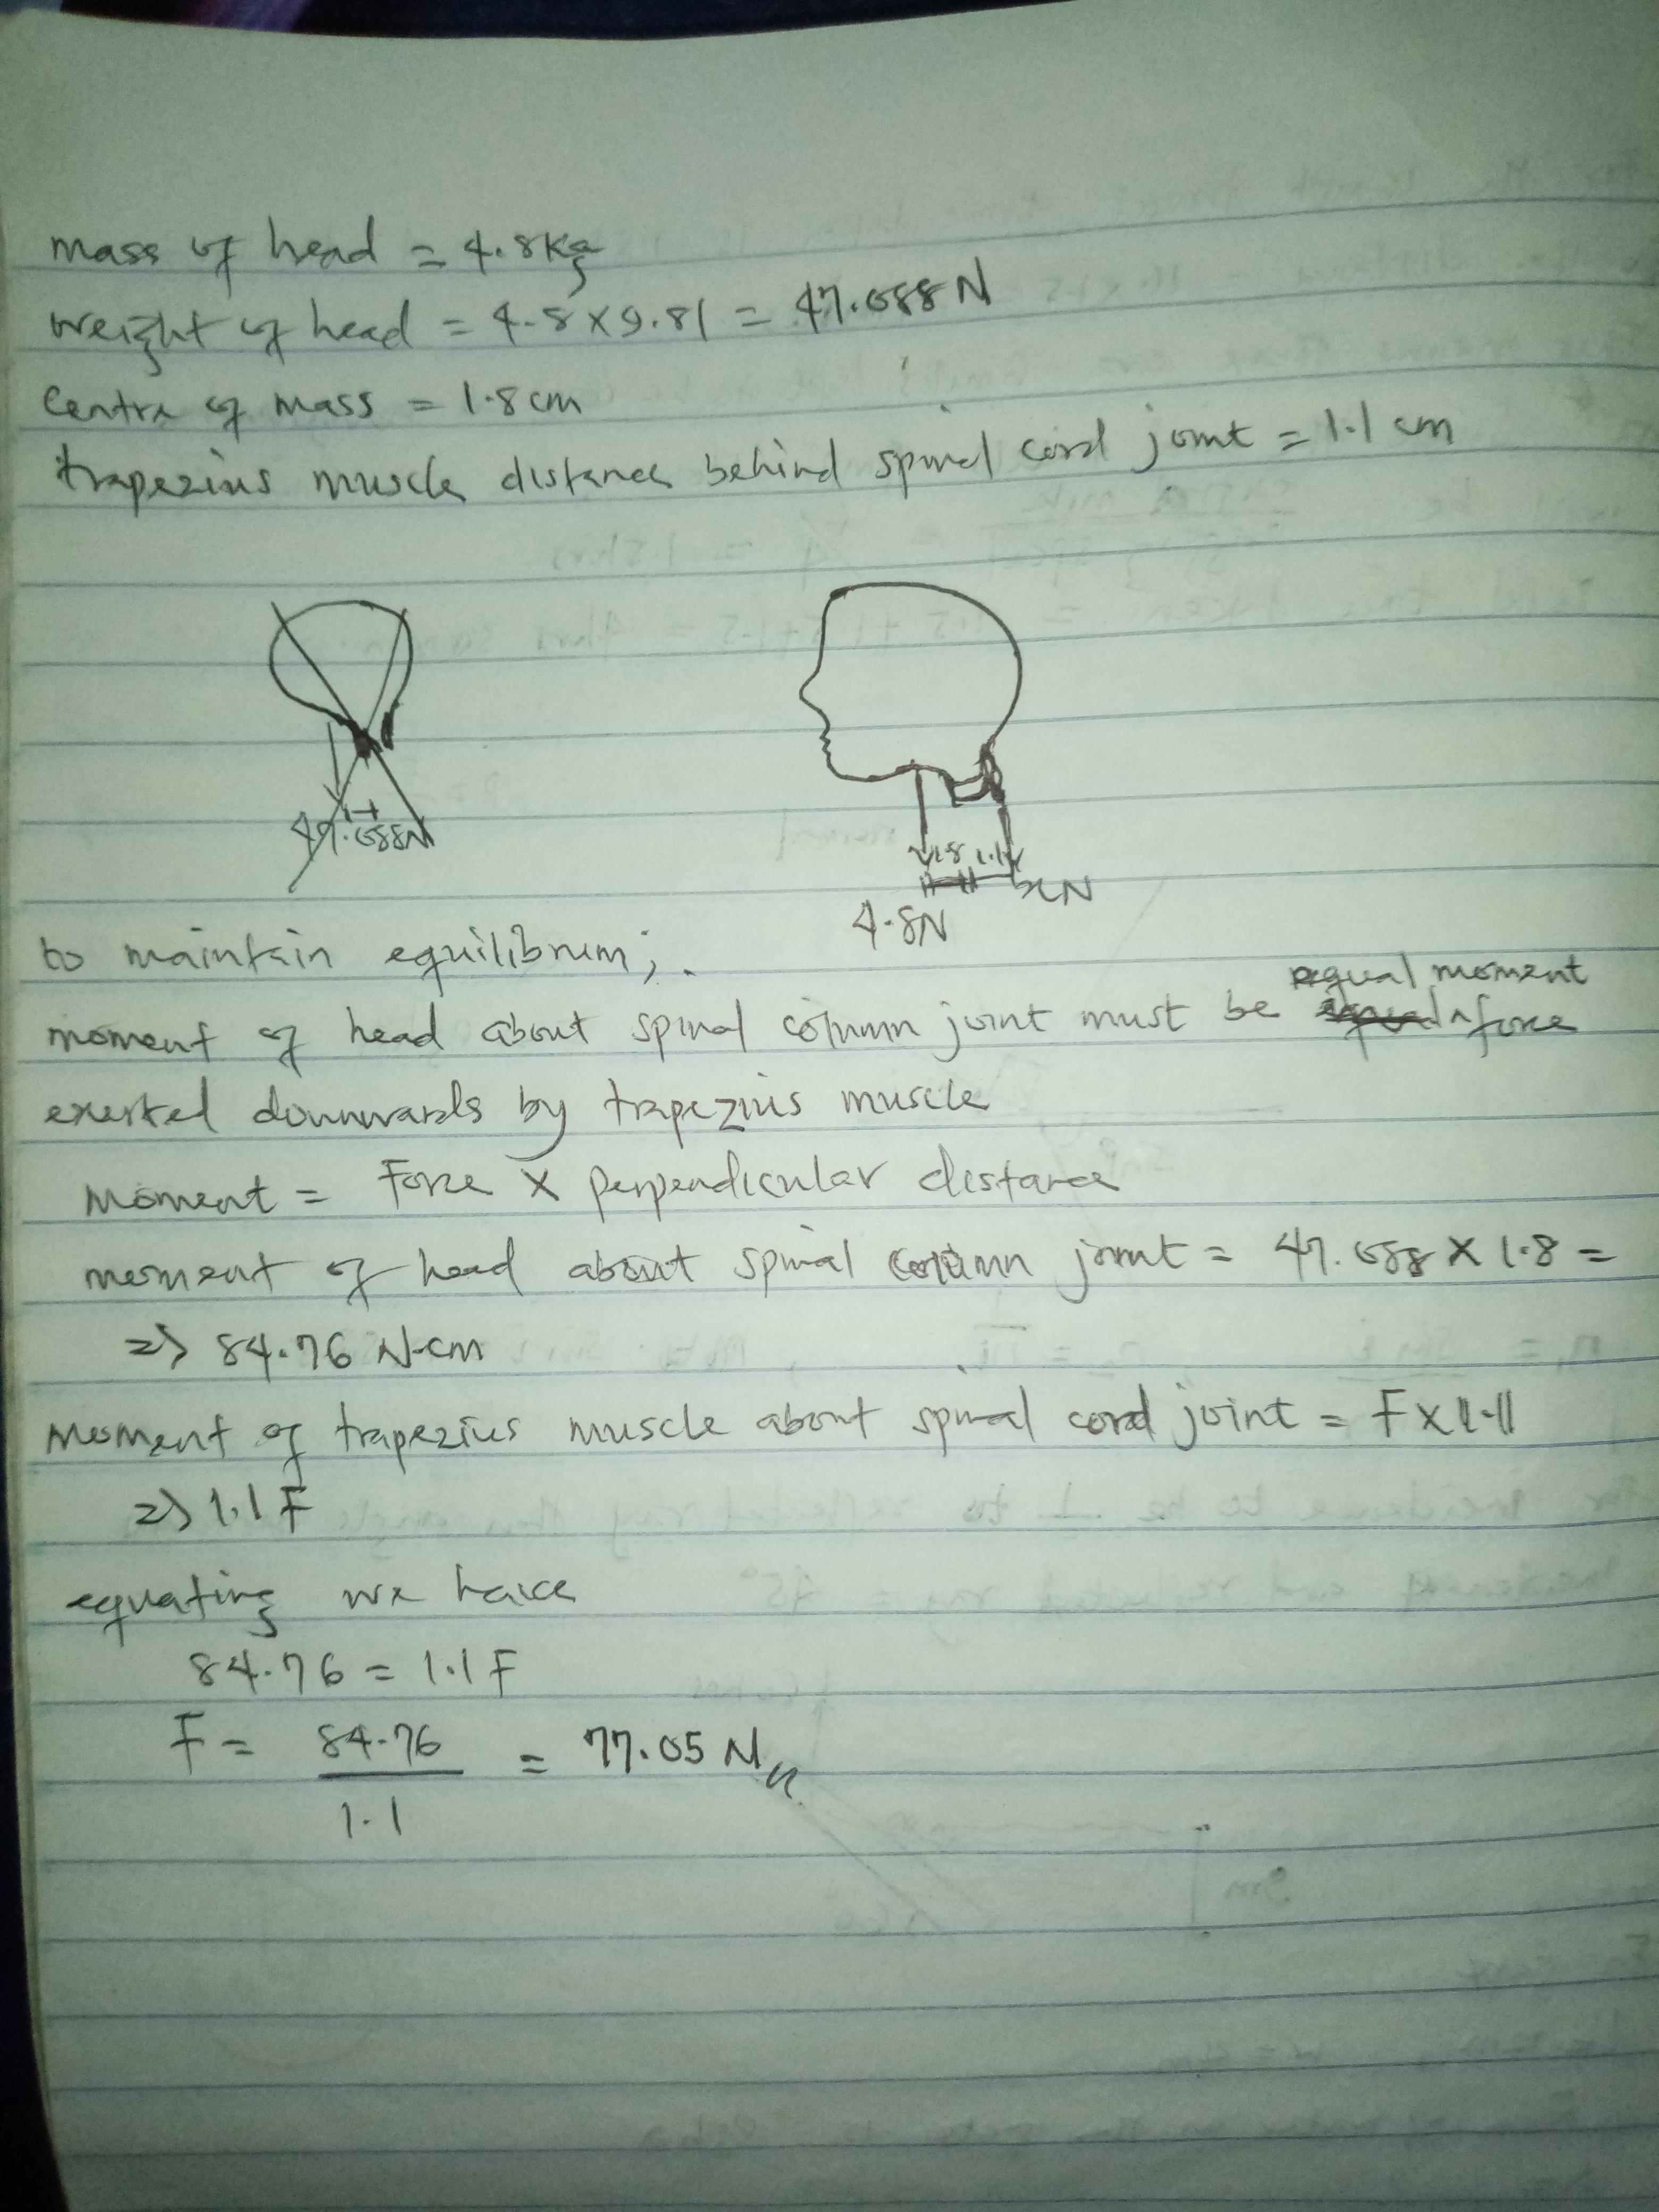 mass of head = 4.8Kg
weight of head = 4.8 x 9.81 = 47.088 N
Centre of mass = 1.8 cm
trapezius muscle distance behind spinal cord joint = 1.1 cm
47.088N
1.8 1.1
xN
4.8N
to maintain equilibrum;
equal moment
moment of head about spinal column joint must be force
exerted downwards by trapezius muscle
Moment = Force x perpendicular distance
moment of head about spinal column joint = 47.088 x 1.8 =
=> 84.76 N-cm
moment of trapezius muscle about spinal cord joint = F x 1.1
=> 1.1 F
equating we have
84.76 = 1.1 F
F = 84.76 / 1.1 = 77.05 N